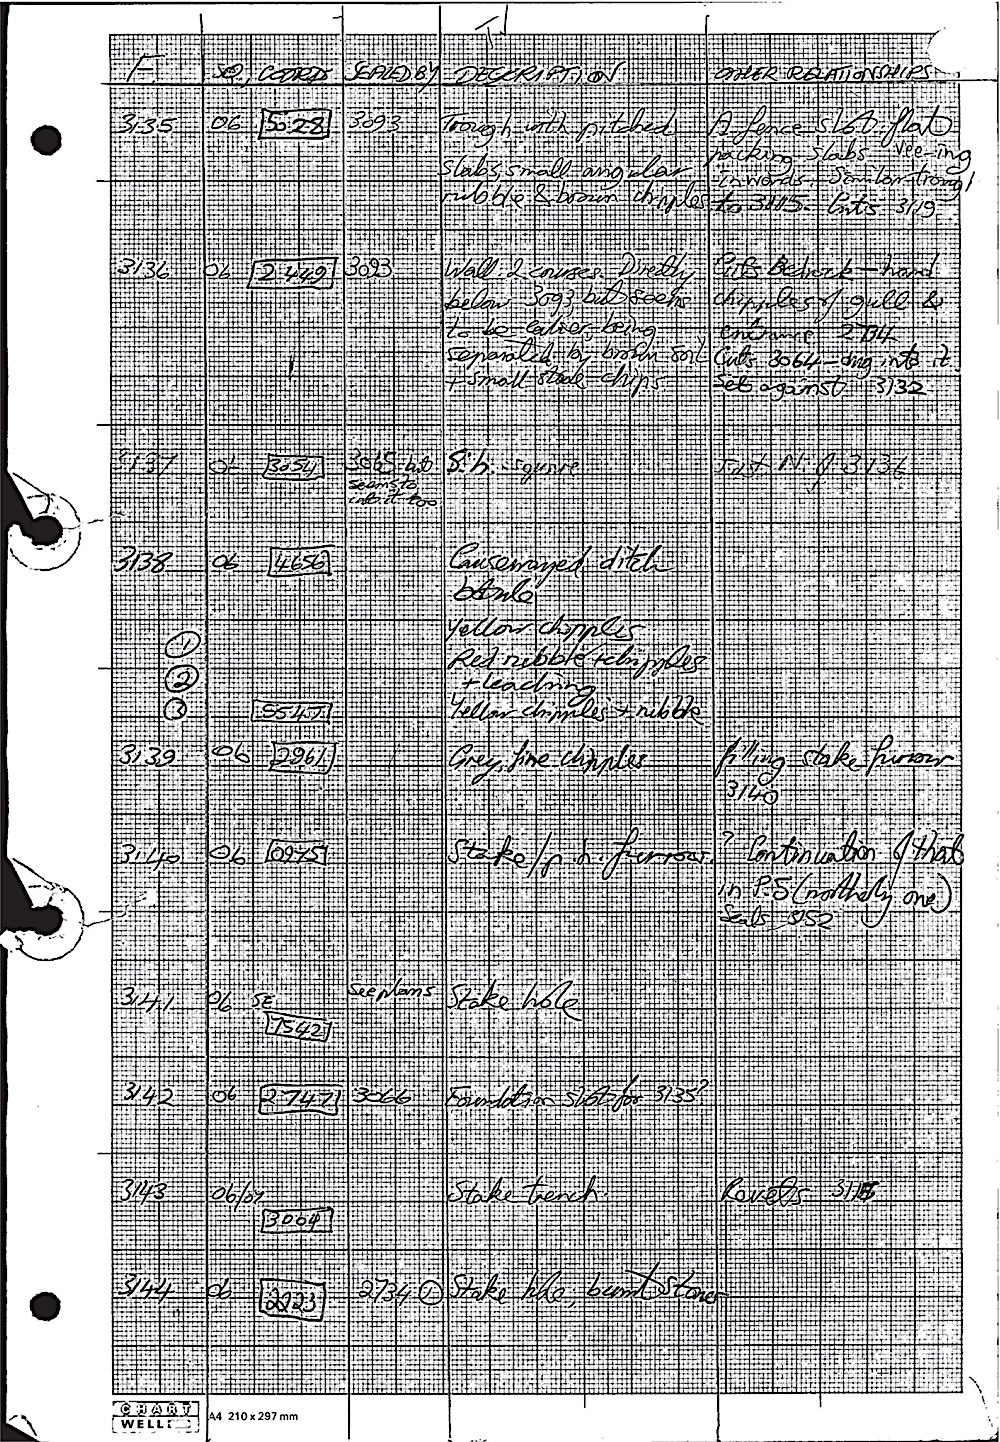 F SQ, COORDS SEALED BY DESCRIPTION OTHER RELATIONSHIPS
3135 06 5028 3093 Trough with pitched A fence slot. flat
slabs, small angular packing slabs vee-ing
rubble & brown chipples inwards. Similar trough
to 3115. Cuts 3119
3136 06 2449 3093 Wall: 2 courses. Directly Cuts Bedrock - hard
below 3093 but seems chipples of gull &
to be earlier, being entrance 2734
separated by brown soil Cuts 3064 - dug into it.
+ small stone chips. Set against 3132
3137 06 3054 3065 - but S.h. square just N. of 3136
seems to
cut it too
3138 06 4656 Causewayed ditch
①
yellow chipples
② Red rubble + chipples
+ leaching
③ 5547 Yellow chipples + rubble
3139 06 2961 Grey, fine chipples filling stake furrow
3140
3140 06 0975 Stake / p.h. furrow. ? Continuation of that
in P.5 (northerly one)
Seals 3152
3141 06 SE See plans Stake hole
1542
3142 06 2747 3066 Foundation slot for 3135?
3143 06/07 Stake trench.
3004
3144 06 2223 2734 ① Stake hole, burnt stones
CHART
WELL
A4 210 x 297 mm